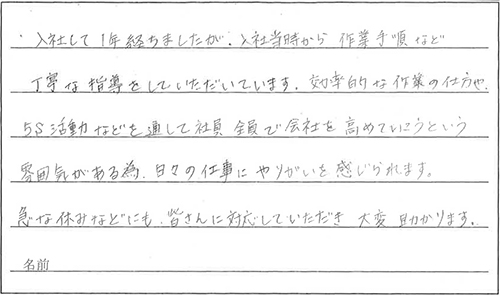 ・入社して1年経ちましたが、入社当時から作業手順など
丁寧な指導をしていただいています。効率的な作業の仕方や、
5S活動などを通して社員全員で会社を高めていこうという
雰囲気がある為、日々の仕事にやりがいを感じられます。
急な休みなどにも、皆さんに対応していただき大変助かります。
名前